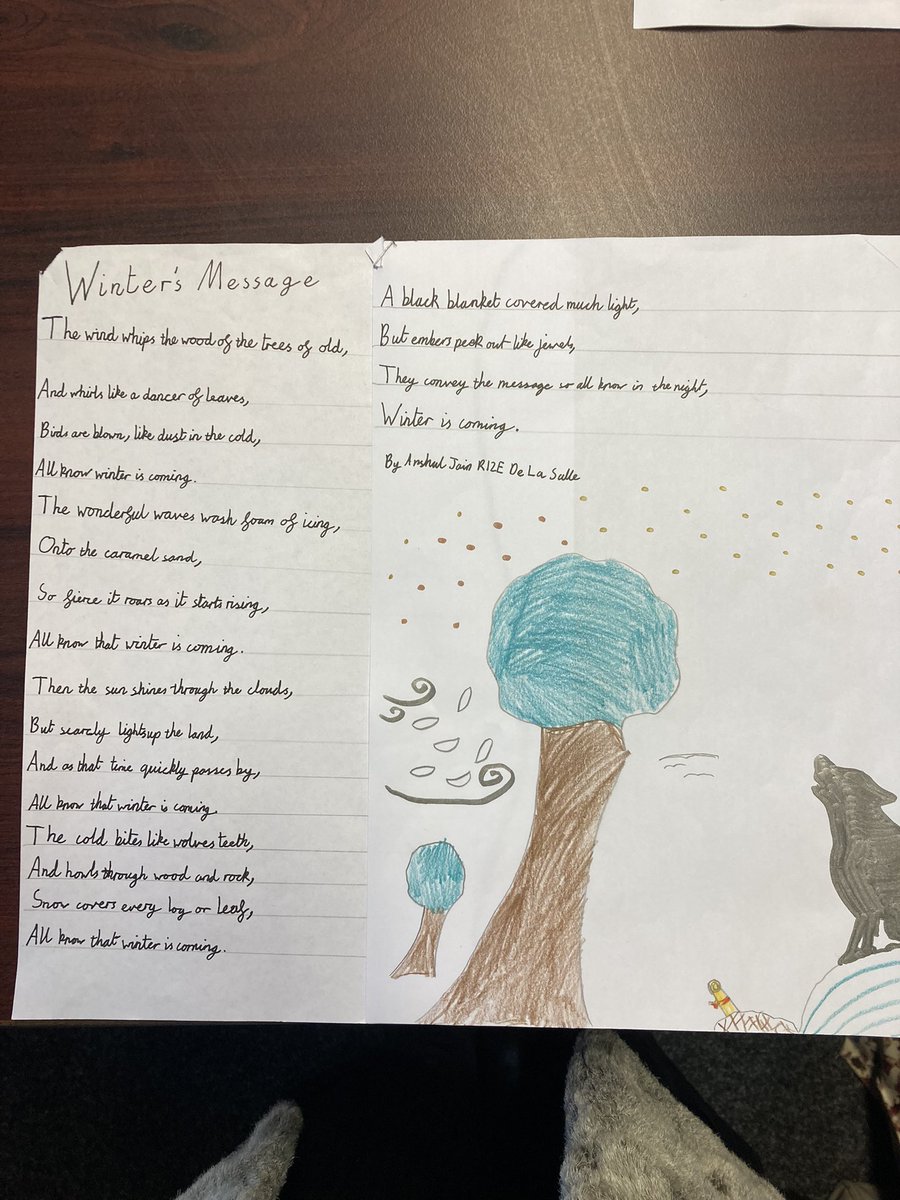 Winter's Message
The wind whips the wood of the trees of old,
And whirls like a dancer of leaves,
Birds are blown, like dust in the cold,
All know winter is coming.
The wonderful waves wash foam of icing,
Onto the caramel sand,
So fierce it roars as it starts rising,
All know that winter is coming.
Then the sun shines through the clouds,
But scarcly lights up the land,
And as that time quickly passes by,
All know that winter is coming
The cold bites like wolves teeth,
And howls through wood and rock,
Snow covers every log or leaf,
All know that winter is coming.
A black blanket covered much light,
But embers peek out like jewels,
They convey the message so all know in the night,
Winter is coming.
By Anshul Jain R1ZE De La Salle